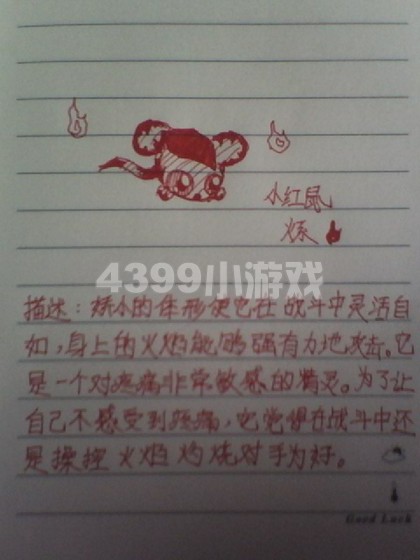 小红鼠
火系
4399小游戏
描述：娇小的体形使它在战斗中灵活自
如，身上的火焰能够强有力地攻击。它
是一个对疼痛非常敏感的精灵。为了让
自己不感受到疼痛，它觉得在战斗中还
是操控火焰灼烧对手为好。
Good Luck